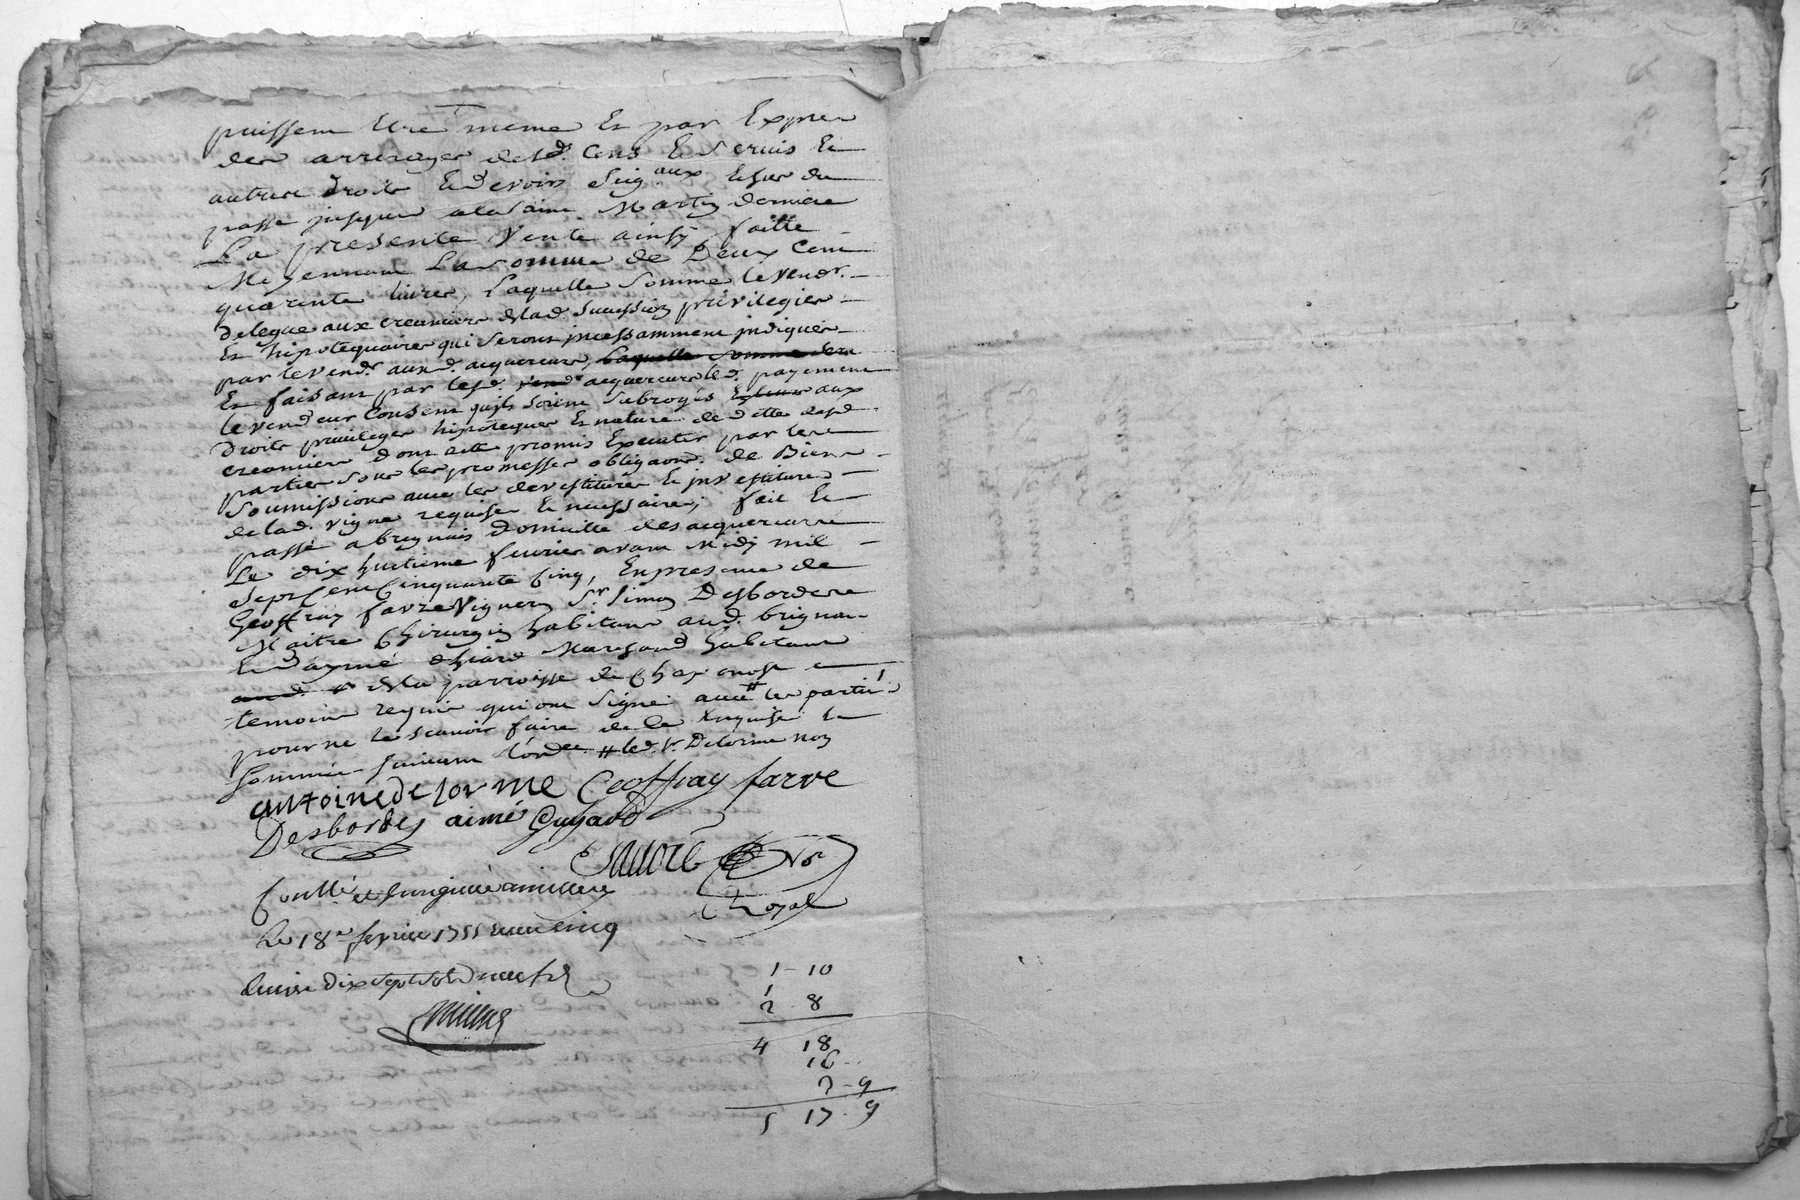 puissent Être même Et par Exprès
des arrerages desd. Cens Et Servis Et
autres droits Et devoirs Seig.aux Echus du
passé jusques a la saint Martin derniere
La presente Vente ainsy faitte
Moyennant La somme de Deux Cent
quarente livres, Laquelle somme le vendr.
delegue aux creanciers de lad. succession privilegies
Et hipotequaires qui seront incessamment indiqués
par le vendr. auxd. acquereurs, Laquelle somme sera
En faisant par lesd. vendr acquereurs led. payement
le vendeur Consent quils soient subrogés Et leur aux
droits privileges hipoteques Et nature de dette desd.
creanciers dont acte promis Executer par les
parties sous les promesses obligaons. de Biens
soumissions avec les devestitures Et investitures
de lad. vigne requises Et necessaires, fait Et
passé a brignais domicille des acquereurs
Le dix huitieme fevrier avant Midy mil
sept Cent Cinquante Cinq, En presence de
Geoffray favre Vigneron Sr. Simon Desbordes
Maitre Chirurgien habitans aud. brignais
Et d'aymé Marchand habitant
aud. de la parroisse de Chaponost
temoins requis qui ont signé avec # les parties
pour ne le scavoir faire de ce Enquise Et
Sommée suivant l'ordce. # led. Sr. Delorme non
antoine de lorme Geoffray farve
Desbordes aimé Guyard
Nore
Royal
Conttlé et insinué a
Le 18e fevrier 1755 cinq
livres dix sept sols neuf d
1 - 10
2 8
4 18
16
2 - 9
5 17 - 9